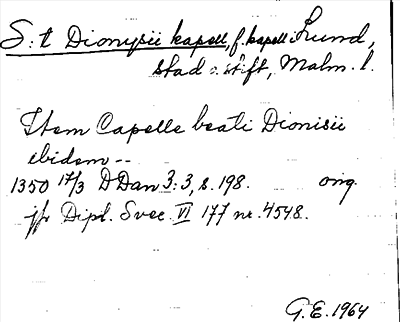 S:t Dionysii kapell, f. kapell i Lund,
stad o. stift, Malm. l.
Item Capelle beati Dionisii
ibidem --
1350 17/3 DDan 3:3, s. 198. orig.
jfr Dipl. Svec. VI 177 nr. 4548.
G.E. 1964